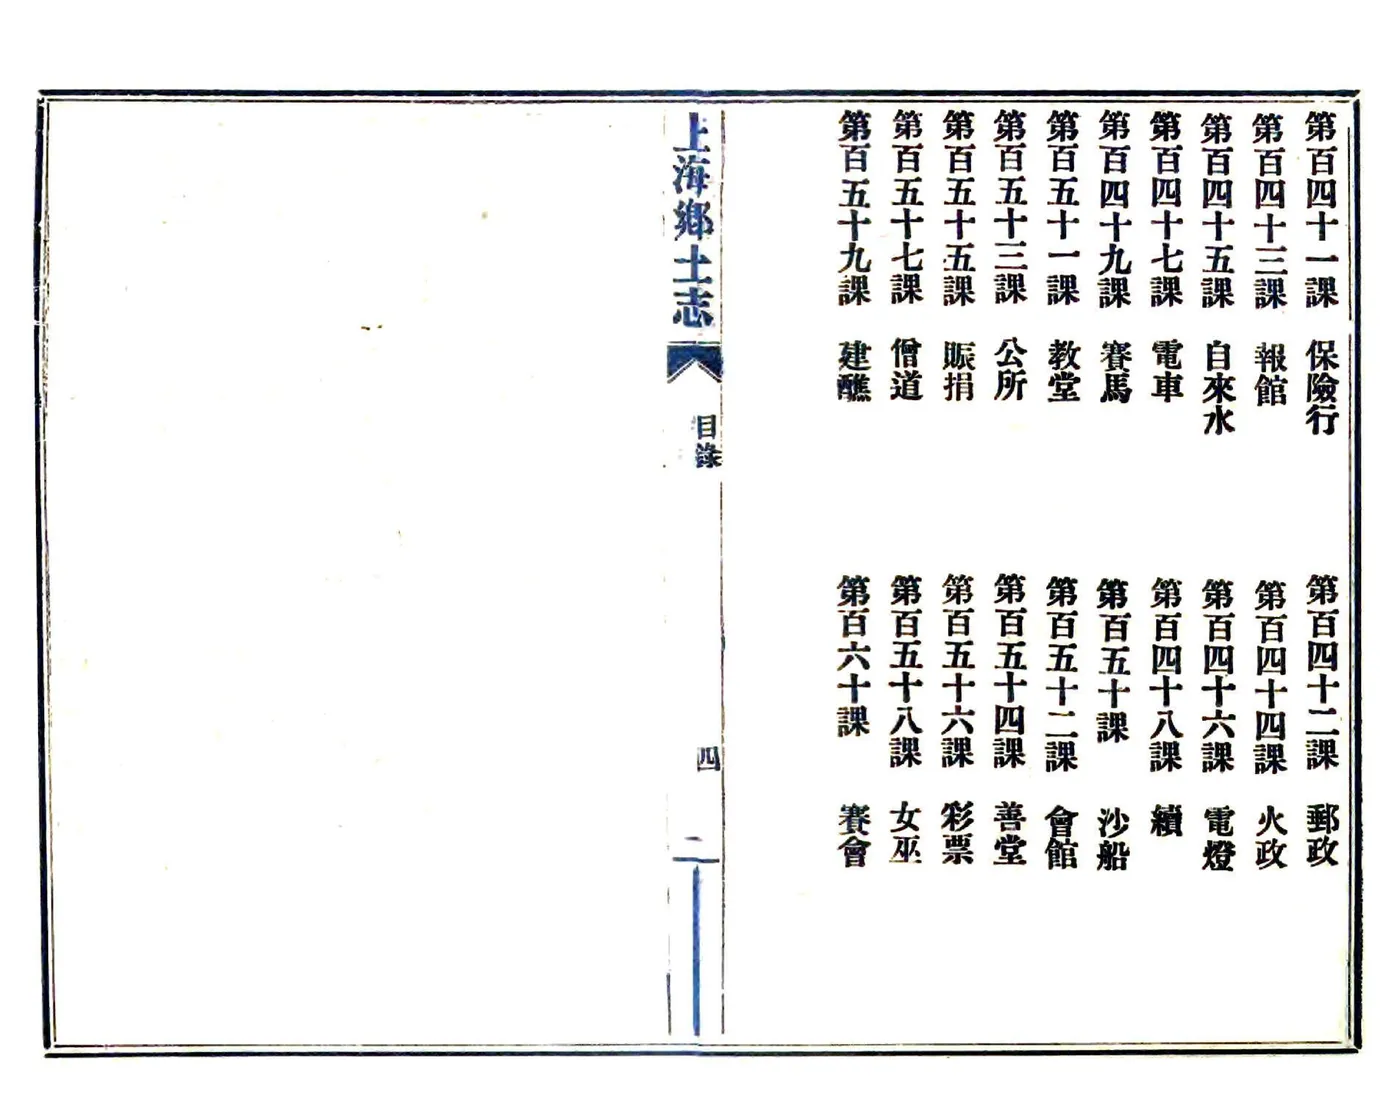 第百四十一課　保險行
第百四十二課　郵政
第百四十三課　報館
第百四十四課　火政
第百四十五課　自來水
第百四十六課　電燈
第百四十七課　電車
第百四十八課　續
第百四十九課　賽馬
第百五十課　沙船
第百五十一課　教堂
第百五十二課　會館
第百五十三課　公所
第百五十四課　善堂
第百五十五課　賑捐
第百五十六課　彩票
第百五十七課　僧道
第百五十八課　女巫
第百五十九課　建醮
第百六十課　賽會
上海鄉土志
目錄
四
二